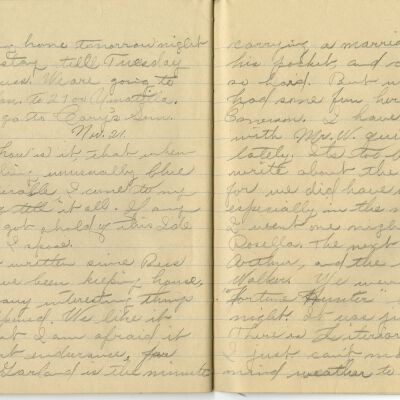 home tomorrow night
stay till Tuesday
We are going to
to 21 on Umatilla.
go to Cary's Sun.
Nov. 21.
how is it, that when
feeling unusually blue
I come to my
tell it all. If any
got ahold of this I'd be
I spose.
written since Bess
've been keeping house,
many interesting things
happened. We like it
but I am afraid it
endurance, for
Garland is the minute
carrying a marria
his pocket, and
so hard. But w
had some fun her
I have
with Mr. W. qui
lately. Its too b
write about the
for we did have
especially in the
I went one nigh
Rosella. The next
Arthur, and the
Walkers. We wen
"Fortune Hunter"
night. It was ju
There is
I just cant m
mind weather to